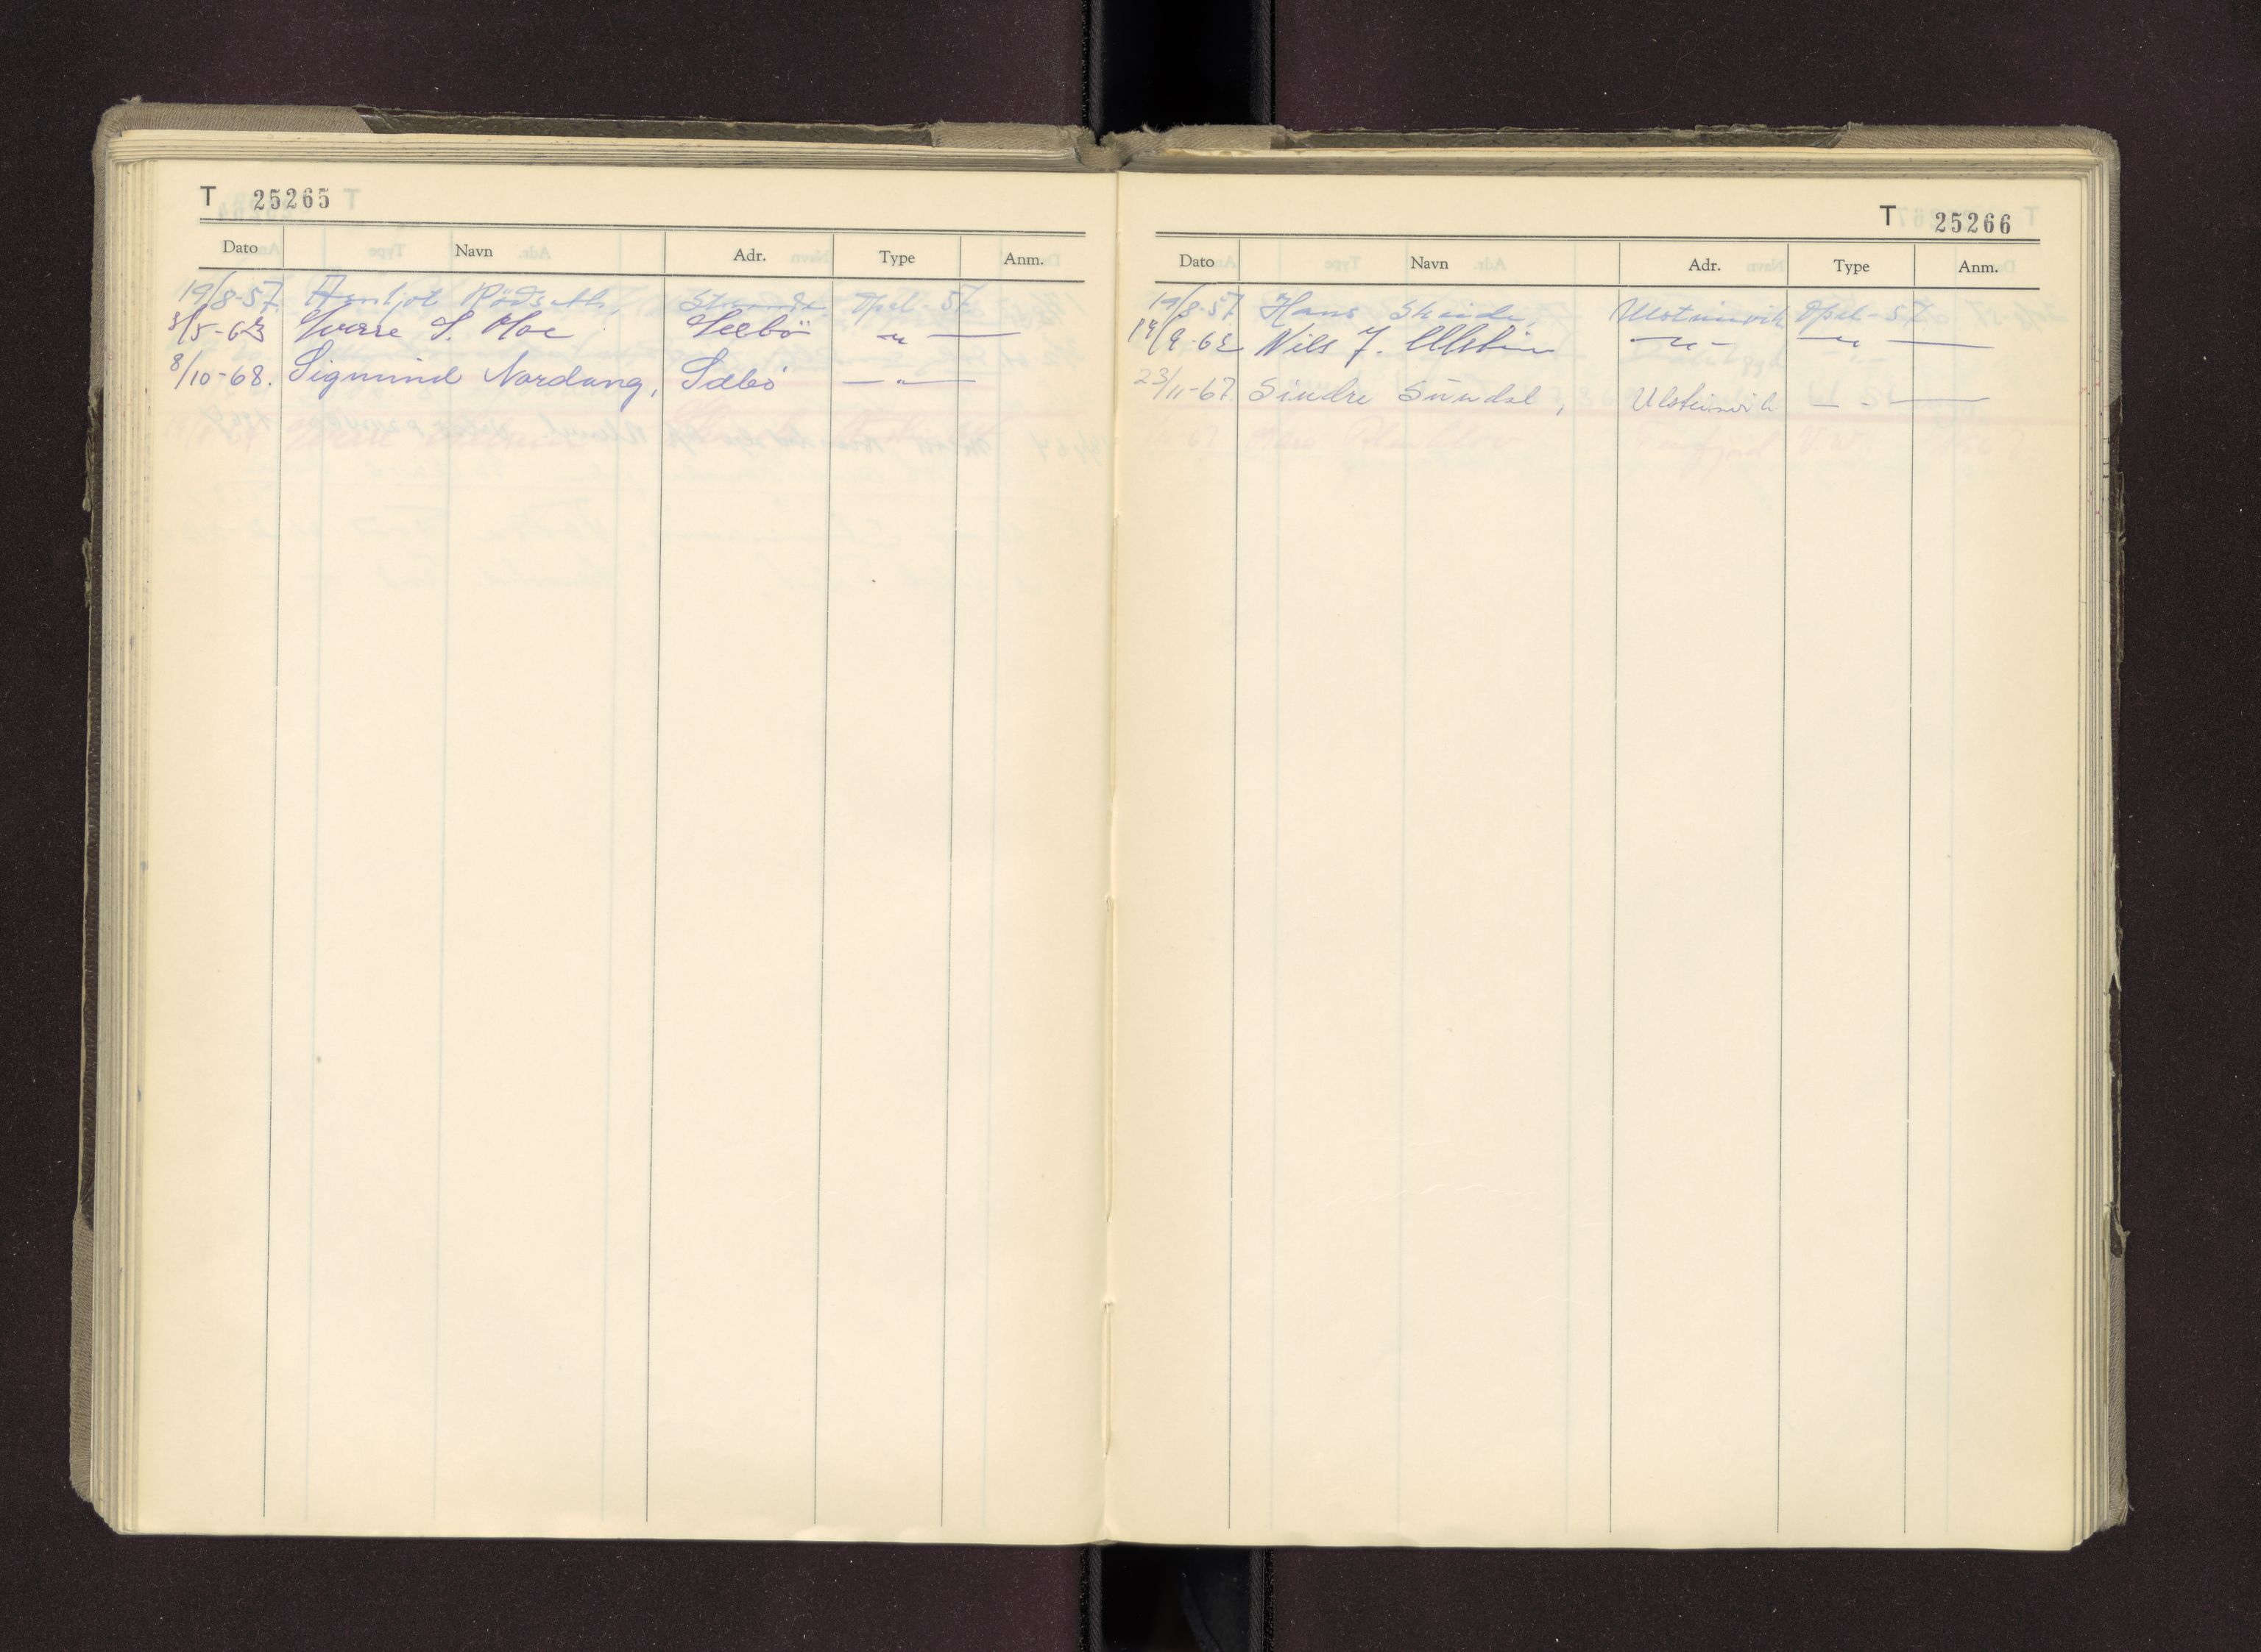 T 25265
Dato Navn Adr. Type Anm.
19/8-57. Arnljot Rödseth, Stranda Opel-57
8/5-63 Sverre S. Moe Sæbö — " —
8/10-68. Sigmund Nordang, Sæbö — " —
T 25266
Dato Navn Adr. Type Anm.
19/8-57. Hans Skeide, Ulsteinvik Opel-57
19/9-62 Nils J. Ulstein — " — — " —
23/11-67 Sindre Sundal, Ulsteinvik — " —